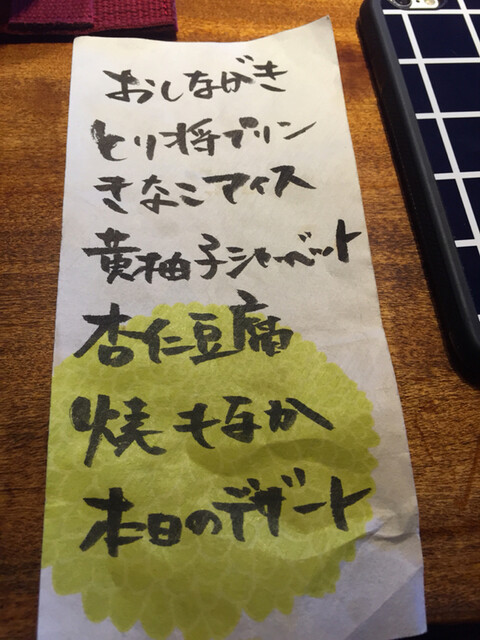 おしながき
とり将プリン
きなこアイス
黄柚子シャーベット
杏仁豆腐
焼もなか
本日のデザート